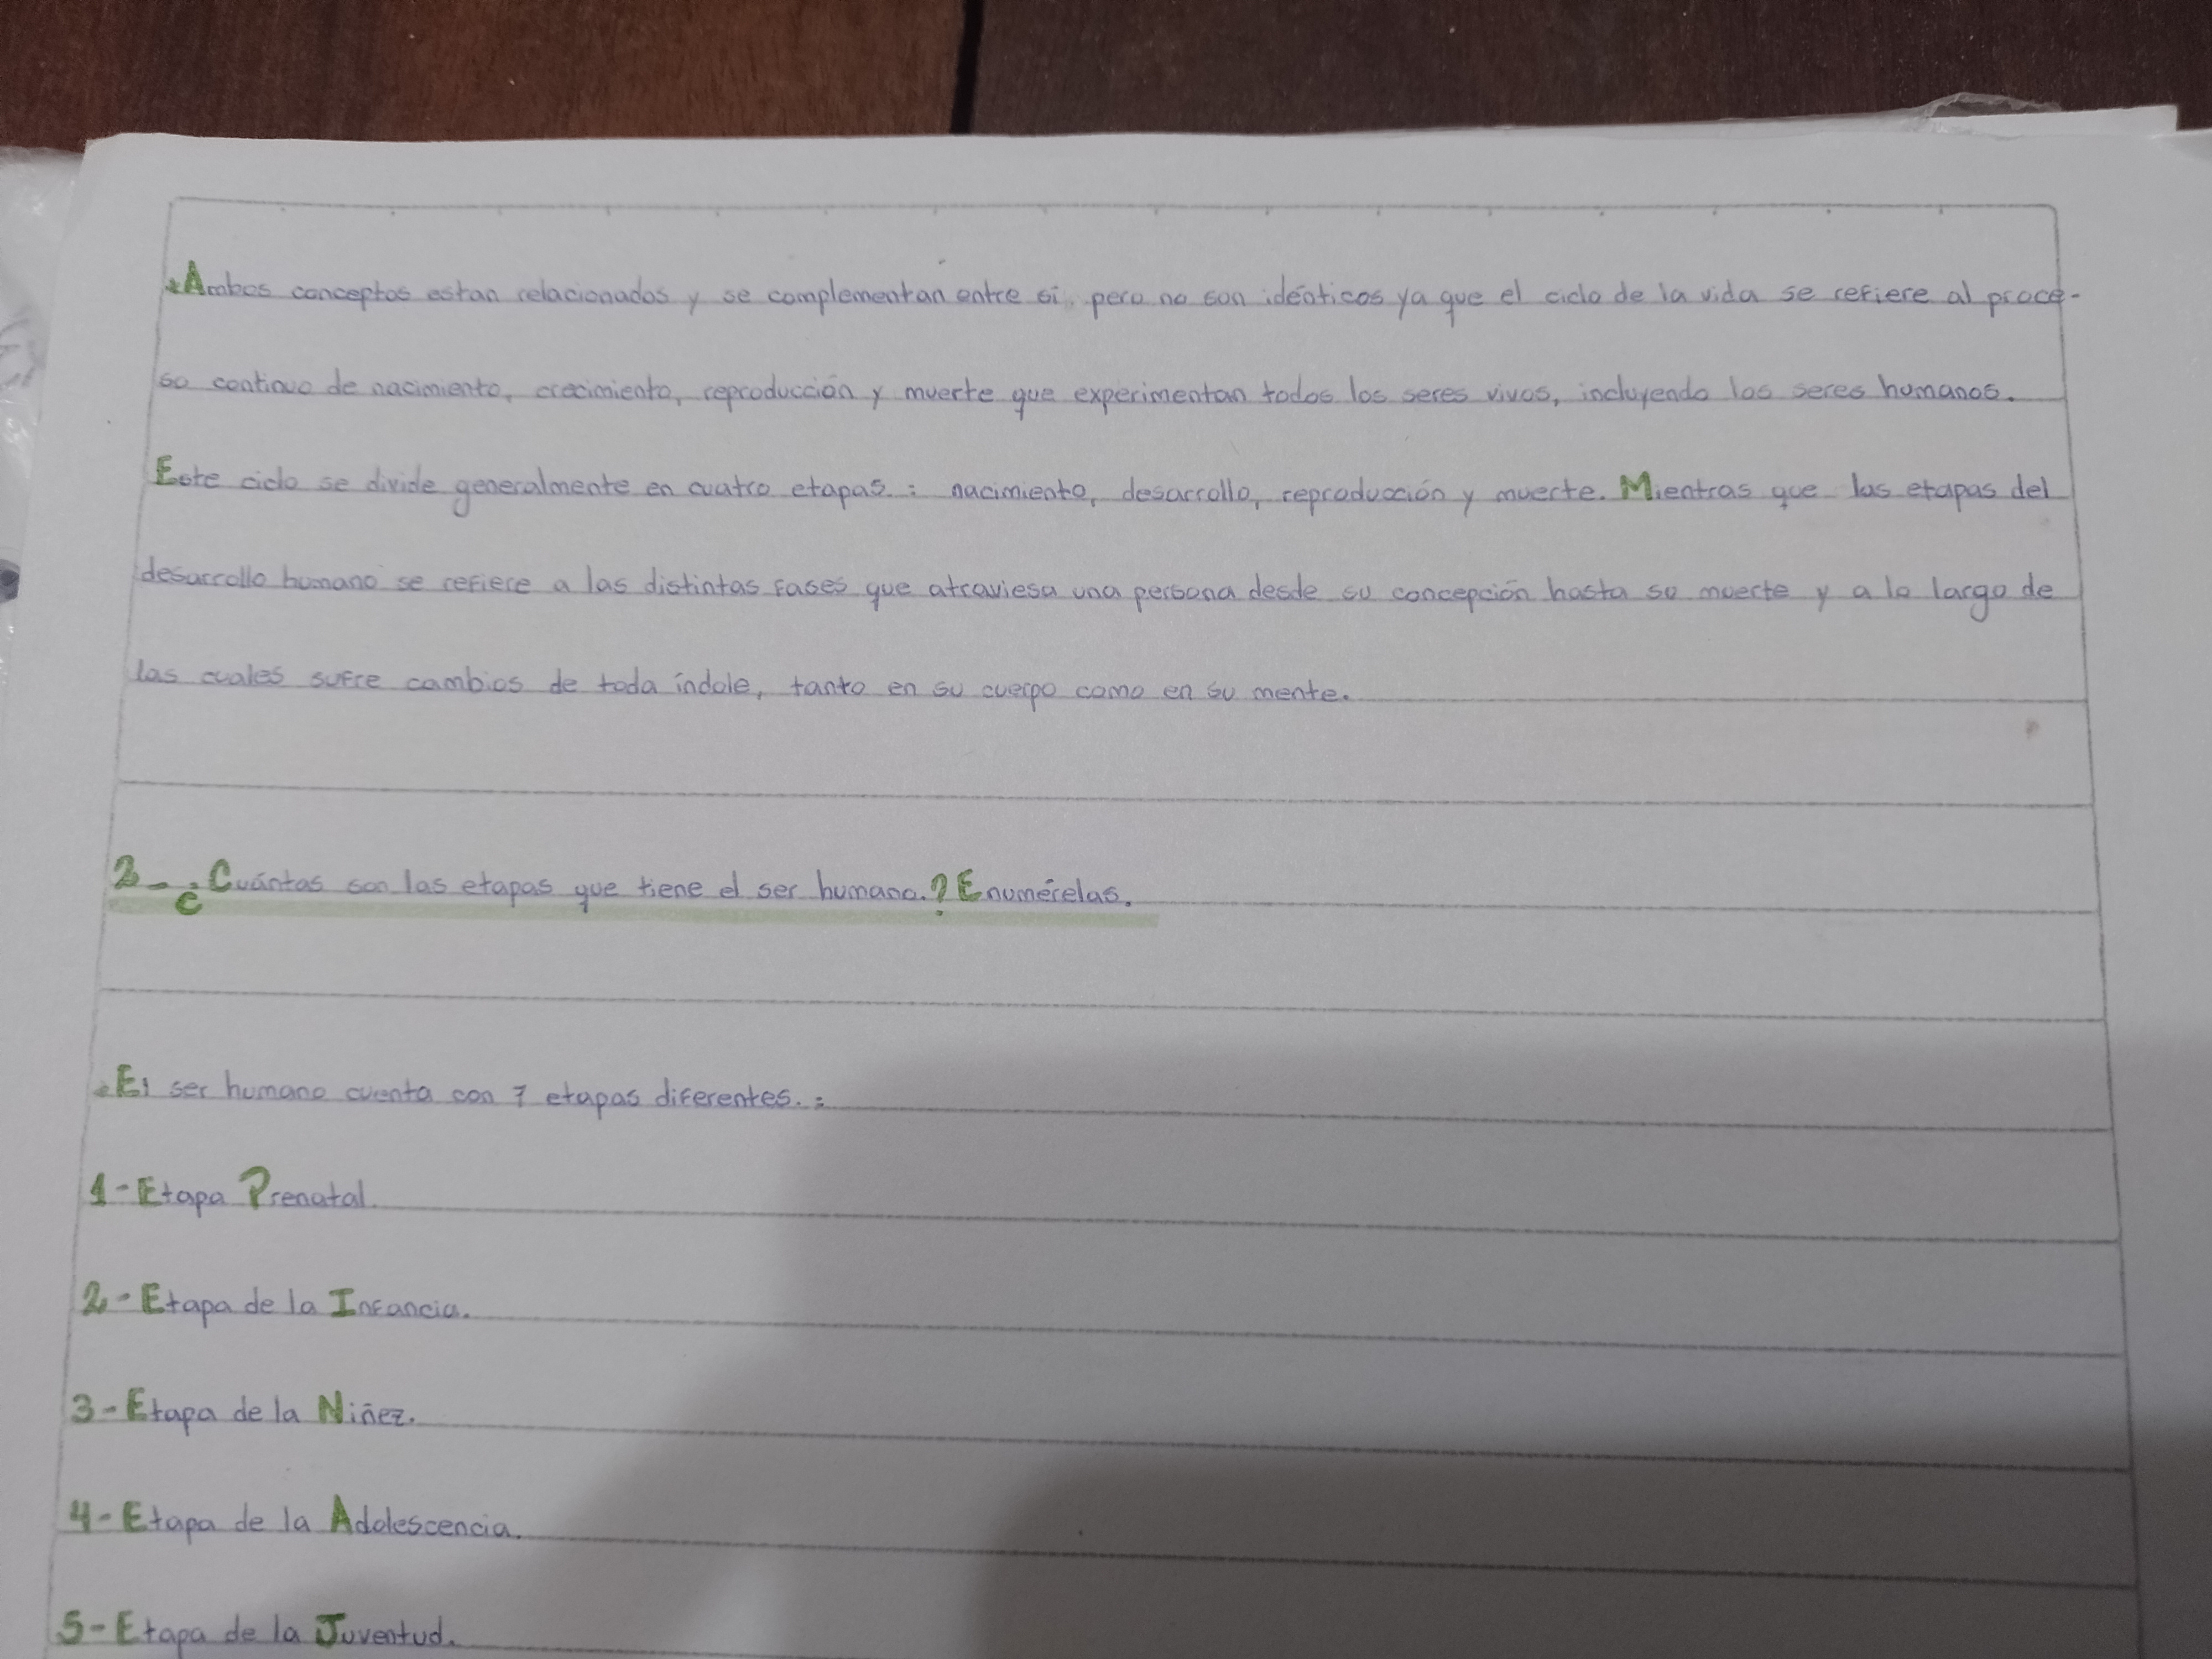 *Ambos conceptos estan relacionados y se complementan entre sí, pero no son idénticos ya que el ciclo de la vida se refiere al proce-
so continuo de nacimiento, crecimiento, reproducción y muerte que experimentan todos los seres vivos, incluyendo los seres humanos.
Este ciclo se divide generalmente en cuatro etapas.: nacimiento, desarrollo, reproducción y muerte. Mientras que las etapas del
desarrollo humano se refiere a las distintas fases que atraviesa una persona desde su concepción hasta su muerte y a lo largo de
las cuales sufre cambios de toda índole, tanto en su cuerpo como en su mente.
2- ¿Cuántas son las etapas que tiene el ser humano.? Enumérelas.
•El ser humano cuenta con 7 etapas diferentes.:
1-Etapa Prenatal.
2-Etapa de la Infancia.
3-Etapa de la Niñez.
4-Etapa de la Adolescencia.
5-Etapa de la Juventud.